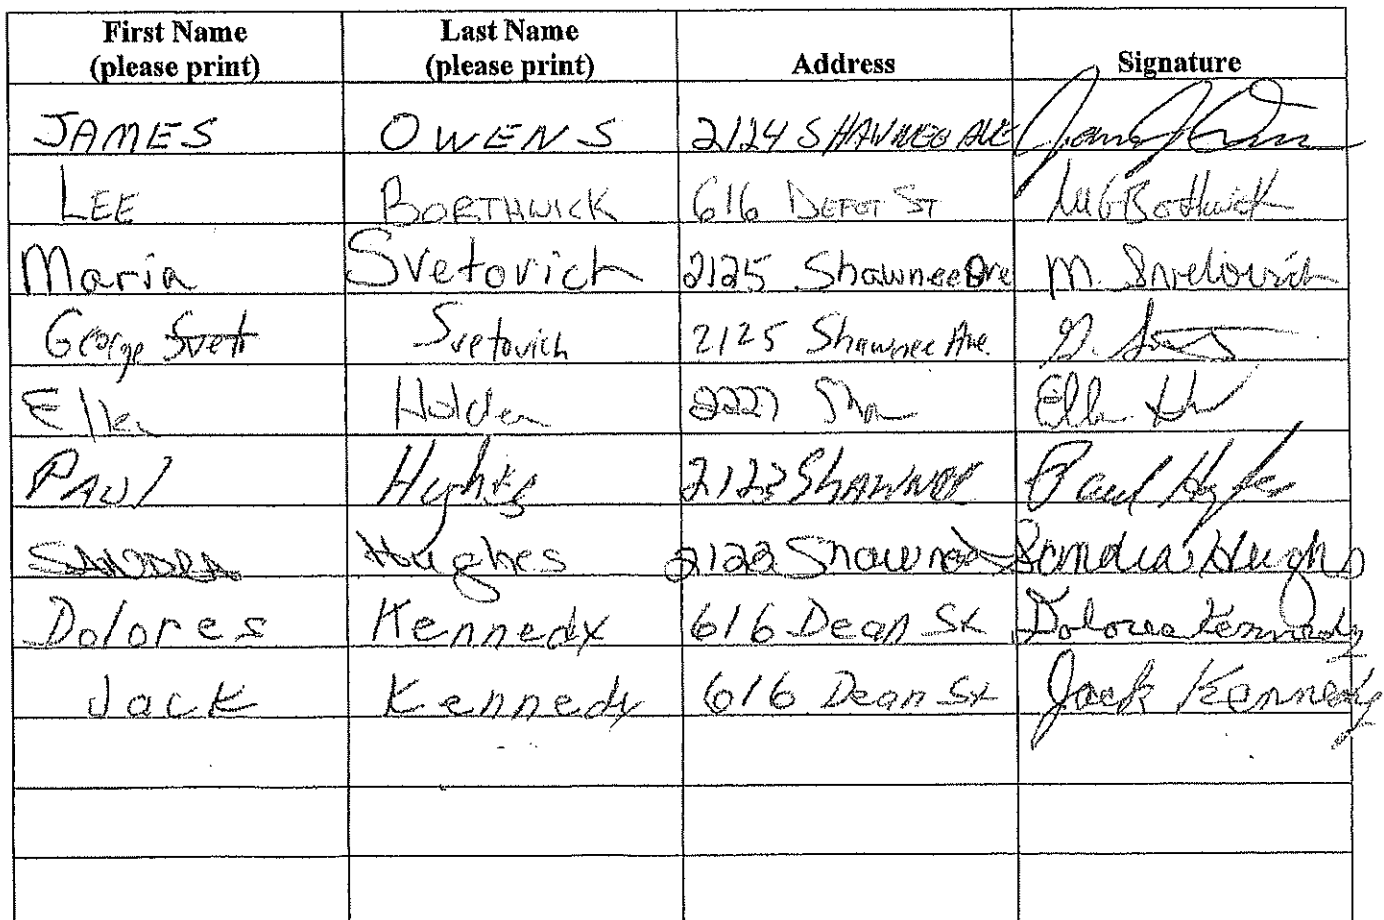 First Name (please print) Last Name (please print) Address Signature
JAMES OWENS 2124 SHAWNEE AVE
LEE BORTHWICK 616 DEPOT ST Borthwick
Maria Svetovich 2125 Shawnee Ave M. Svetovich
George Svet Svetovich 2125 Shawnee Ave. G.
Ella Holden 2227 Sha Ella
PAUL Hughes 2123 SHAWNEE Paul Hughes
SANDRA Hughes 2123 Shawnee Sandra Hughes
Dolores Kennedy 616 Dean St Dolores Kennedy
Jack Kennedy 616 Dean St Jack Kennedy